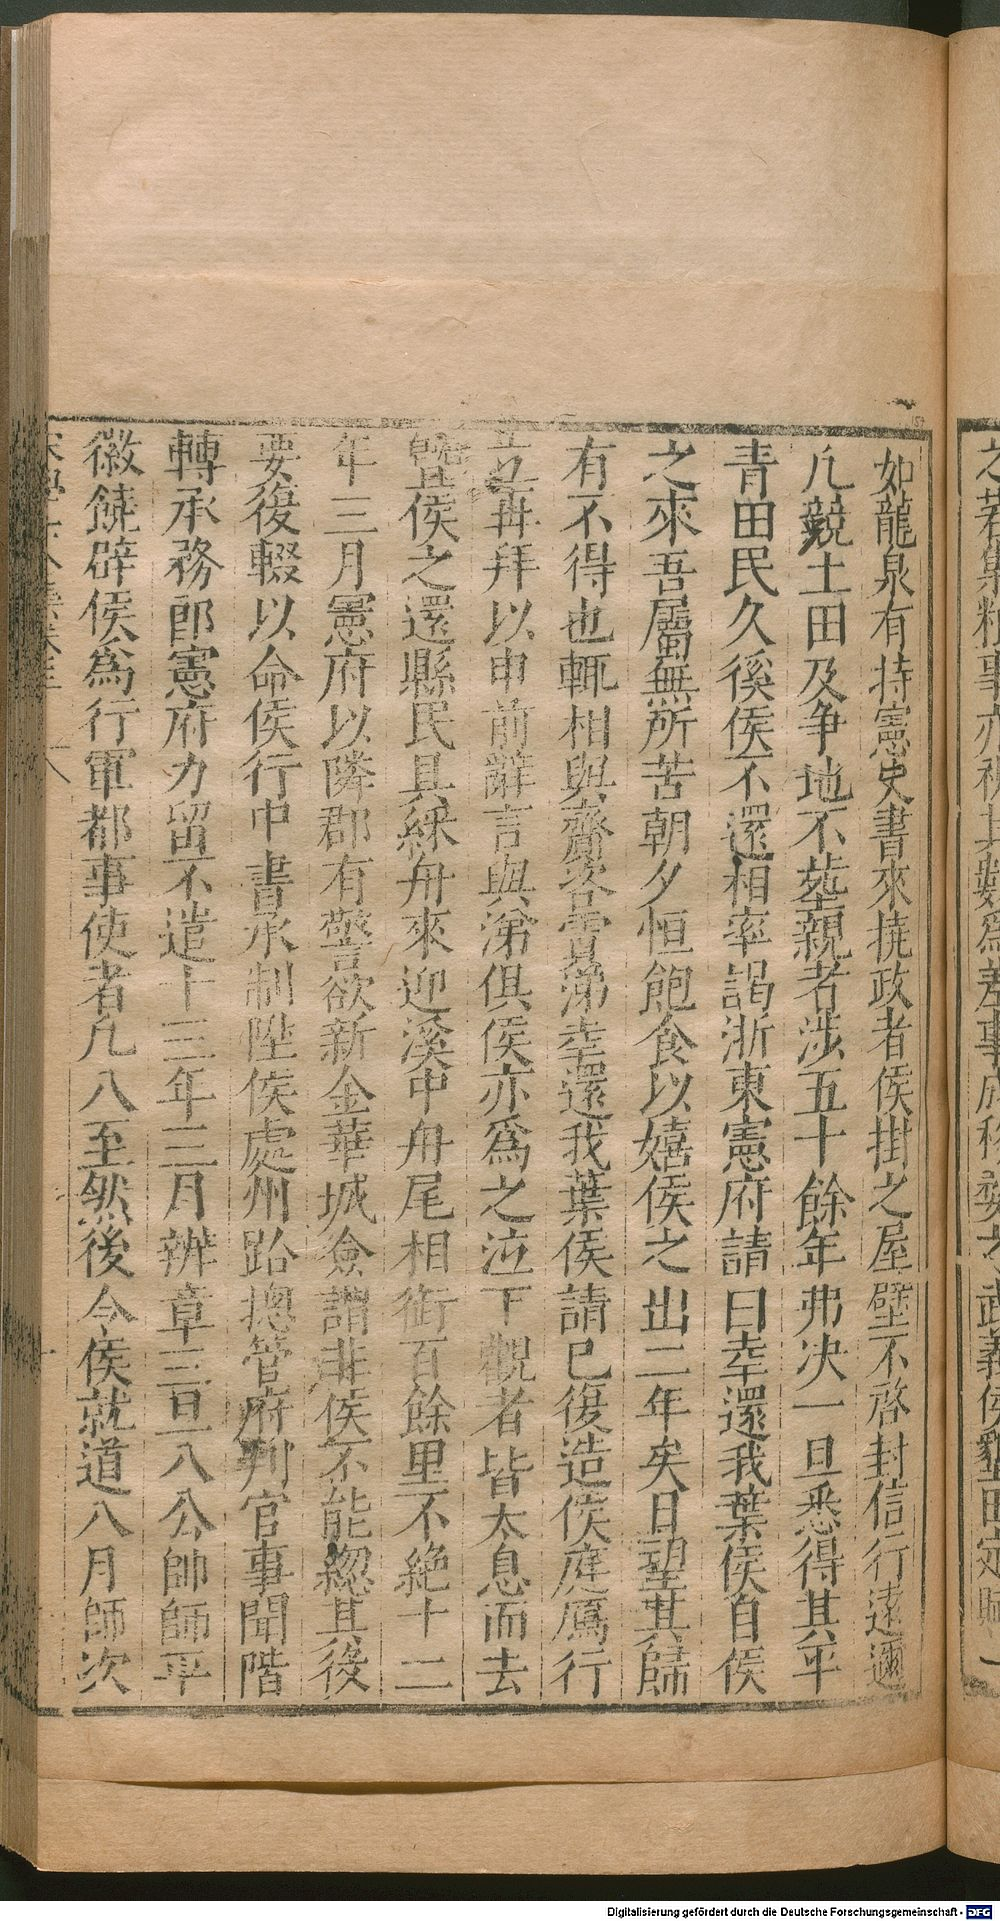 如龍泉有持憲史書來撓政者侯掛之屋壁不啓封信行遠邇
凡競土田及争地不塟親者涉五十餘年弗决一旦悉得其平
青田民久徯侯不還相率謁浙東憲府請曰幸還我葉侯自侯
之來吾屬無所苦朝夕恒飽食以嬉侯之出二年矣日望其歸
有不得也輒相與齎咨涕幸還我葉侯請已復造侯庭鴈行
立再拜以申前辭言與涕俱侯亦爲之泣下觀者皆太息而去
曁侯之還縣民具綵舟來迎溪中舟尾相銜百餘里不絶十二
年三月憲府以隣郡有警欲新金華城僉謂非侯不能緫其役
要復輟以命侯行中書承制陞侯處州路摠管府判官事聞階
轉承務郎憲府力留不遣十三年三月辨章三旦八公帥師平
徽饒辟侯爲行軍都事使者凡八至然後令侯就道八月師次
Digitalisierung gefördert durch die Deutsche Forschungsgemeinschaft - DFG